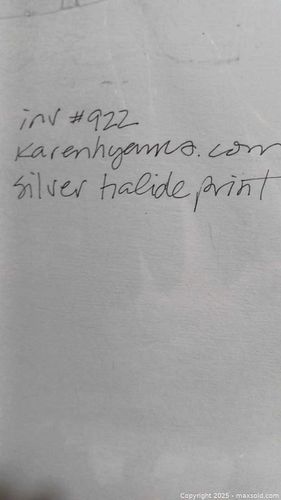 inv #922
karenhyams.com
silver halide print
Copyright 2025 - maxsold.com